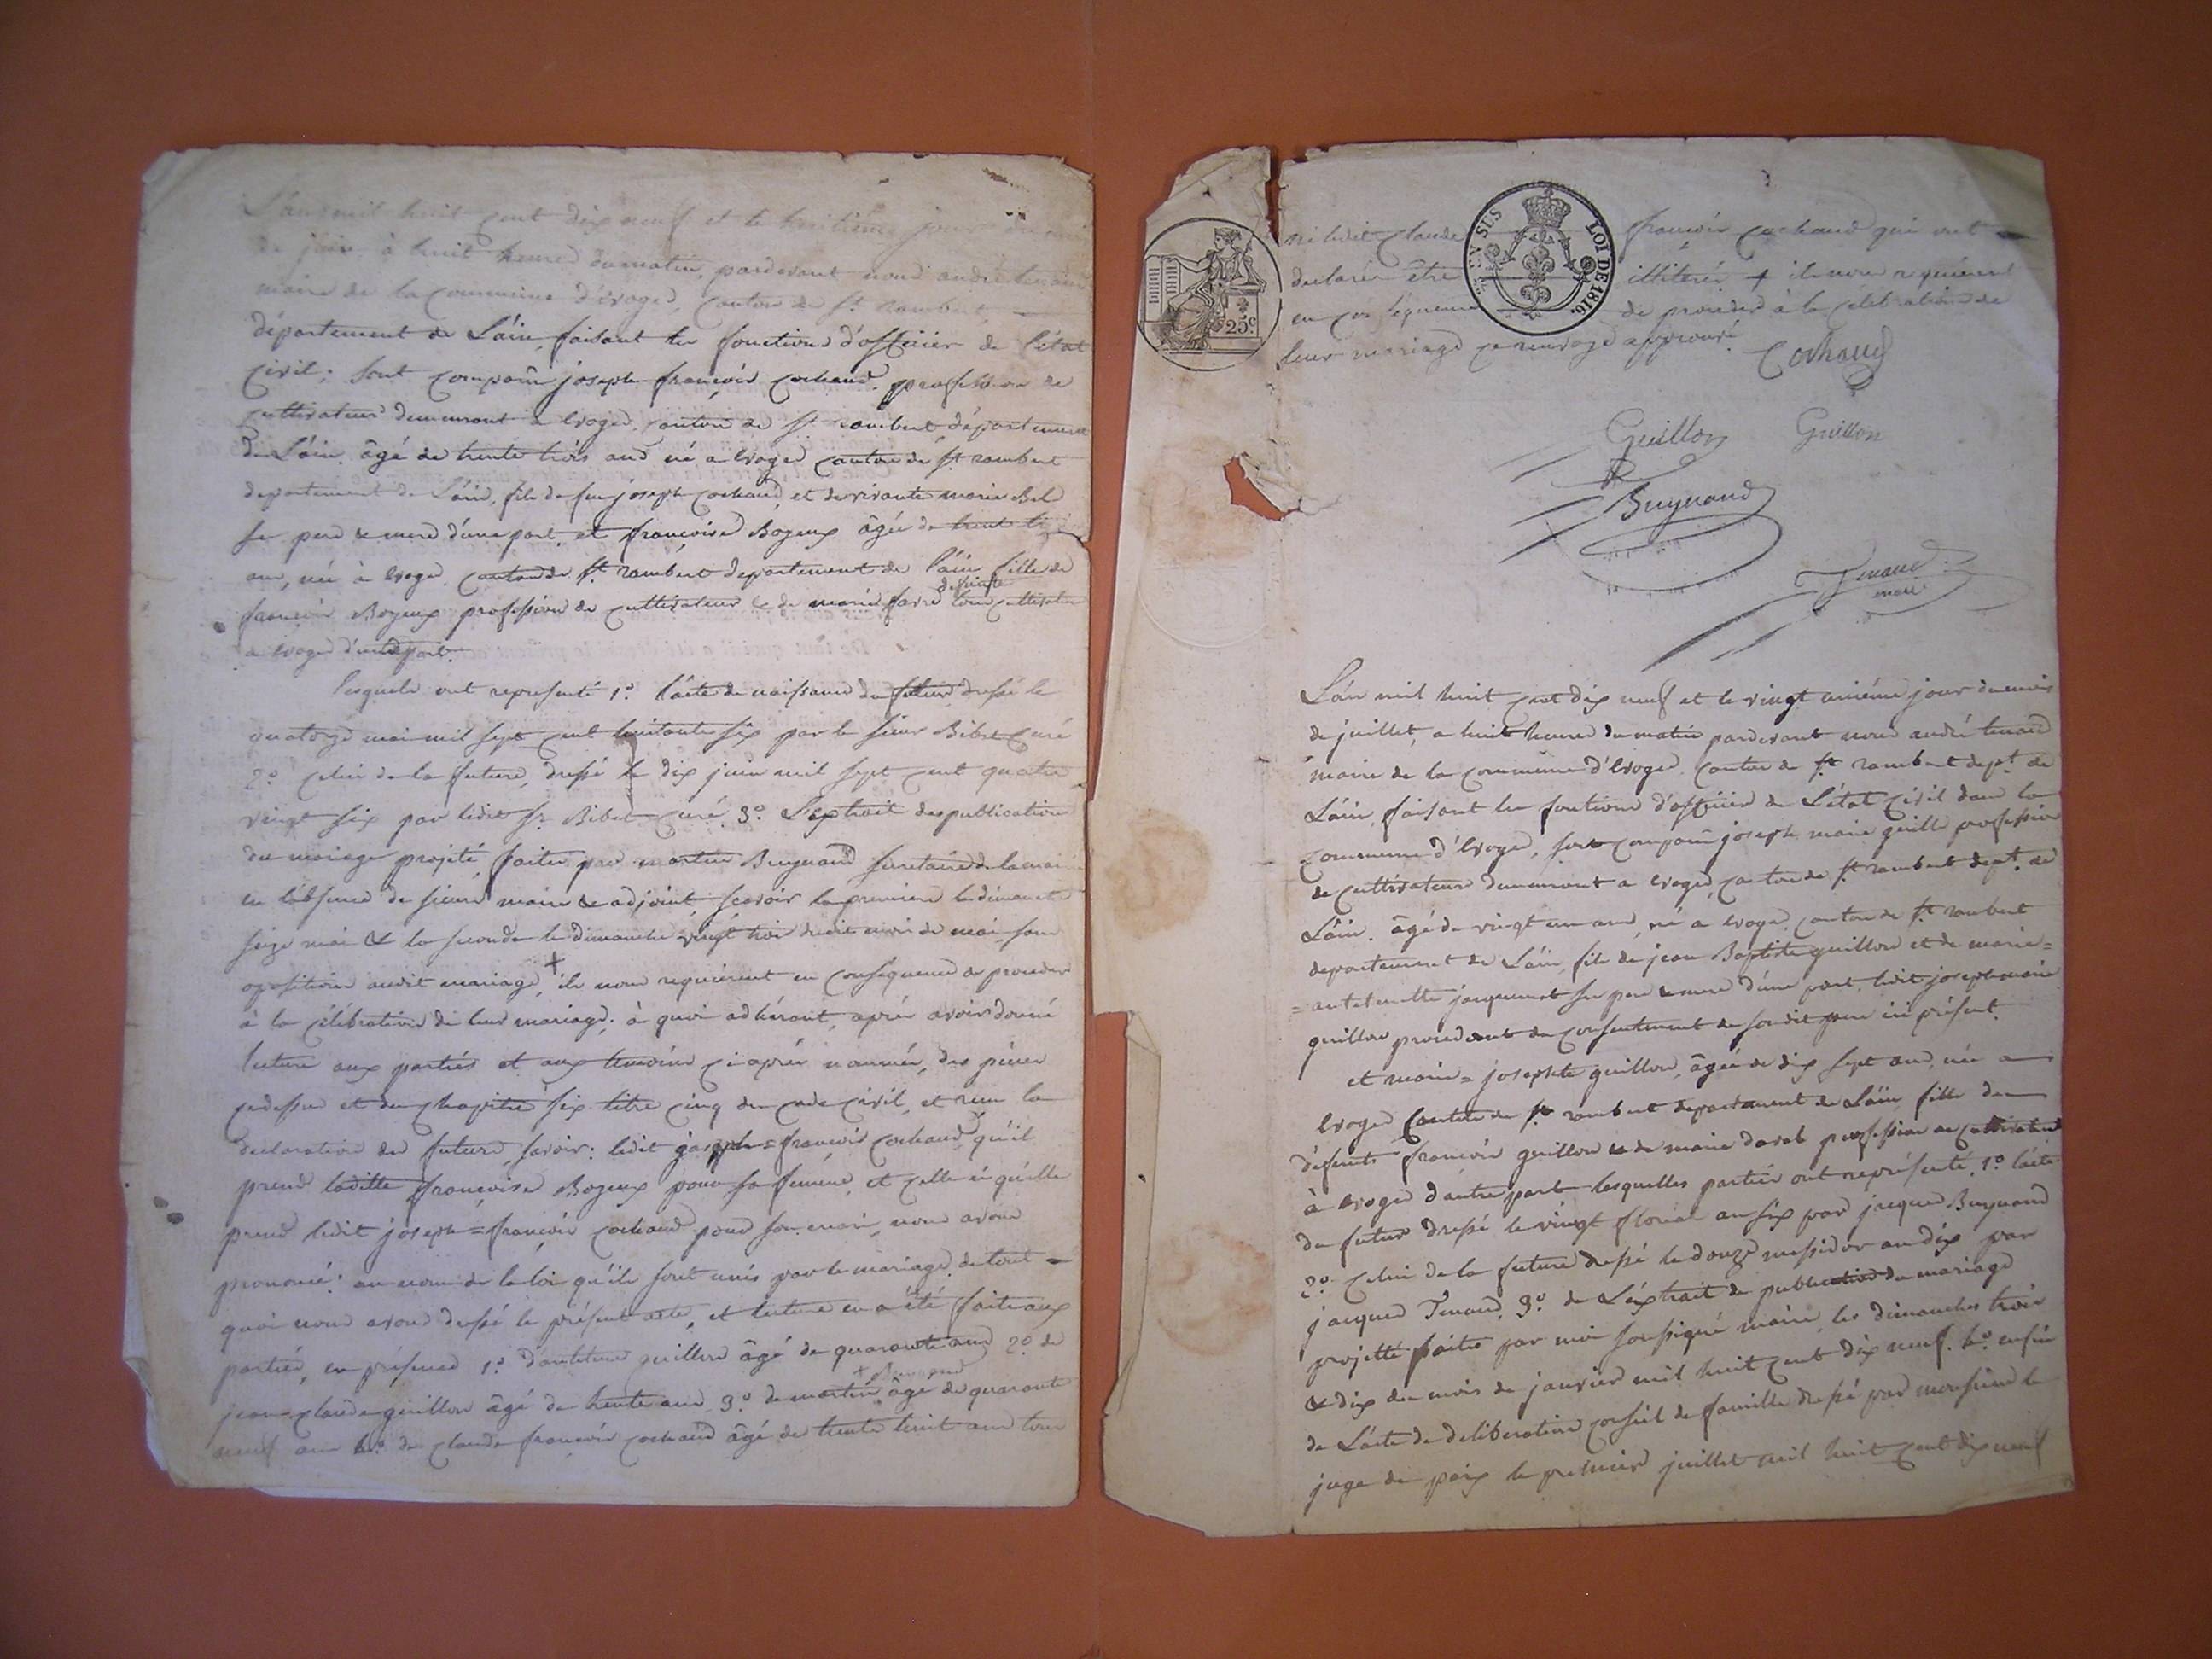 L'an mil huit cent dix neuf et le huitieme jour du mois
de juin à huit heures du matin, pardevant nous andré tenand
maire de la commune d'Evoges, canton de St. rambert,
département de L'ain, faisant les fonctions d'officier de l'état
civil; sont comparu joseph françois cochaud profession de
cultivateur demeurant a Evoges, canton de St. rambert département
de L'ain, âgé de trente trois ans né a Evoges canton de St. rambert
departement de L'ain, fils de feu joseph cochaud et de vivante marie Bel
ses pere & mere d'une part, et françoise Bozeux âgée de trent
ans, née à Evoges canton de St. rambert departement de l'ain fille de
françois Bozeux profession de cultivateur & de marie favre cultivateur
a Evoges d'une part.
lesquels ont representé 1.° L'acte de naissance du futur dressé le
quatorze mai mil sept cent huitante six par le sieur Bibet curé
2.° celui de la future, dressé le dix juin mil sept cent quatre
vingt six par ledit Sr. Bibet curé 3.° L'extrait des publication
du mariage projeté, faites par martin Buynand secretaire de la mai
en l'absence de sieurs maire & adjoint, scavoir la premiere le dimanche
seize mai & la seconde le dimanche vingt trois dudit mois de mai sans
oposition audit mariage, + ils nous requierent en consequence de proceder
à la célébration de leur mariage; à quoi adhérant, après avoir donné
lecture aux partiés et aux temoins ci après nommés, des pièces
cydessus et du chapitre six titre cinq du code civil, et reçu la
declaration des futurs, savoir: ledit joseph=françois cochaud, qu'il
prend laditte françoise Bozeux pour sa femme, et celle ci qu'elle
prend ledit joseph=françois cochaud pour son mari, nous avons
prononcé: au nom de la loi qu'ils sont unis par le mariage de tout
quoi nous avons dressé le présent acte, et lecture en a été faite aux
partiés, en présence 1.° d'antelme guillon âgé de quarante ans 2.° de
jean-claude guillon âgé de trente ans 3.° de martin + Buynand âgé de quarante
neuf ans 4.° de claude françois cochaud âgé de trente huit ans tous
ni ledit claude françois cochaud qui ont
declarés être illiterés + ils nous requierent
en conséquence de proceder à la célébration de
leur mariage ce renvoye approuvé
Cochaud
EN SUS
LOI DE 1816.
25c
Guillon Guillon
Buynand
Tenand
maire
L'an mil huit cent dix neuf et le vingt unième jour du mois
de juillet, a huit heures du matin pardevant nous andré tenand
maire de la commune d'Evoges canton de St. rambert dept. de
L'ain, faisant les fontions d'officier de L'état civil dans la
commune d'Evoges, sont comparu joseph marie guillon profession
de cultivateur demeurant a Evoges, canton de St. rambert dept. de
L'ain, âgé de vingt un ans, né a Evoges canton de St. rambert
departement de L'ain, fils de jean Baptiste guillon et de marie=
=antelmette jacquemet ses pere & mere d'une part, ledit joseph marie
guillon procedant du consentement de sondit pere ici présent.
et marie=josephte guillon, âgée de dix sept ans, née a
Evoges canton de St. rambert departement de L'ain fille des
défunts françois guillon & de marie profession de cultivateur
à Evoges d'autre part lesquelles partiés ont représenté, 1.° l'acte
du futur dressé le vingt floréal an six par jacque Buynand
2.° celui de la future dressé le douze messidor an dix par
jacques Tenand, 3.° de L'extrait de publication du mariage
projetté faites par moi soussigné maire, les dimanches trois
& dix du mois de janvier mil huit cent dix neuf. 4.° enfin
de L'acte de deliberation conseil de famille dressé par monsieur le
juge de paix le premier juillet mil huit cent dix neuf